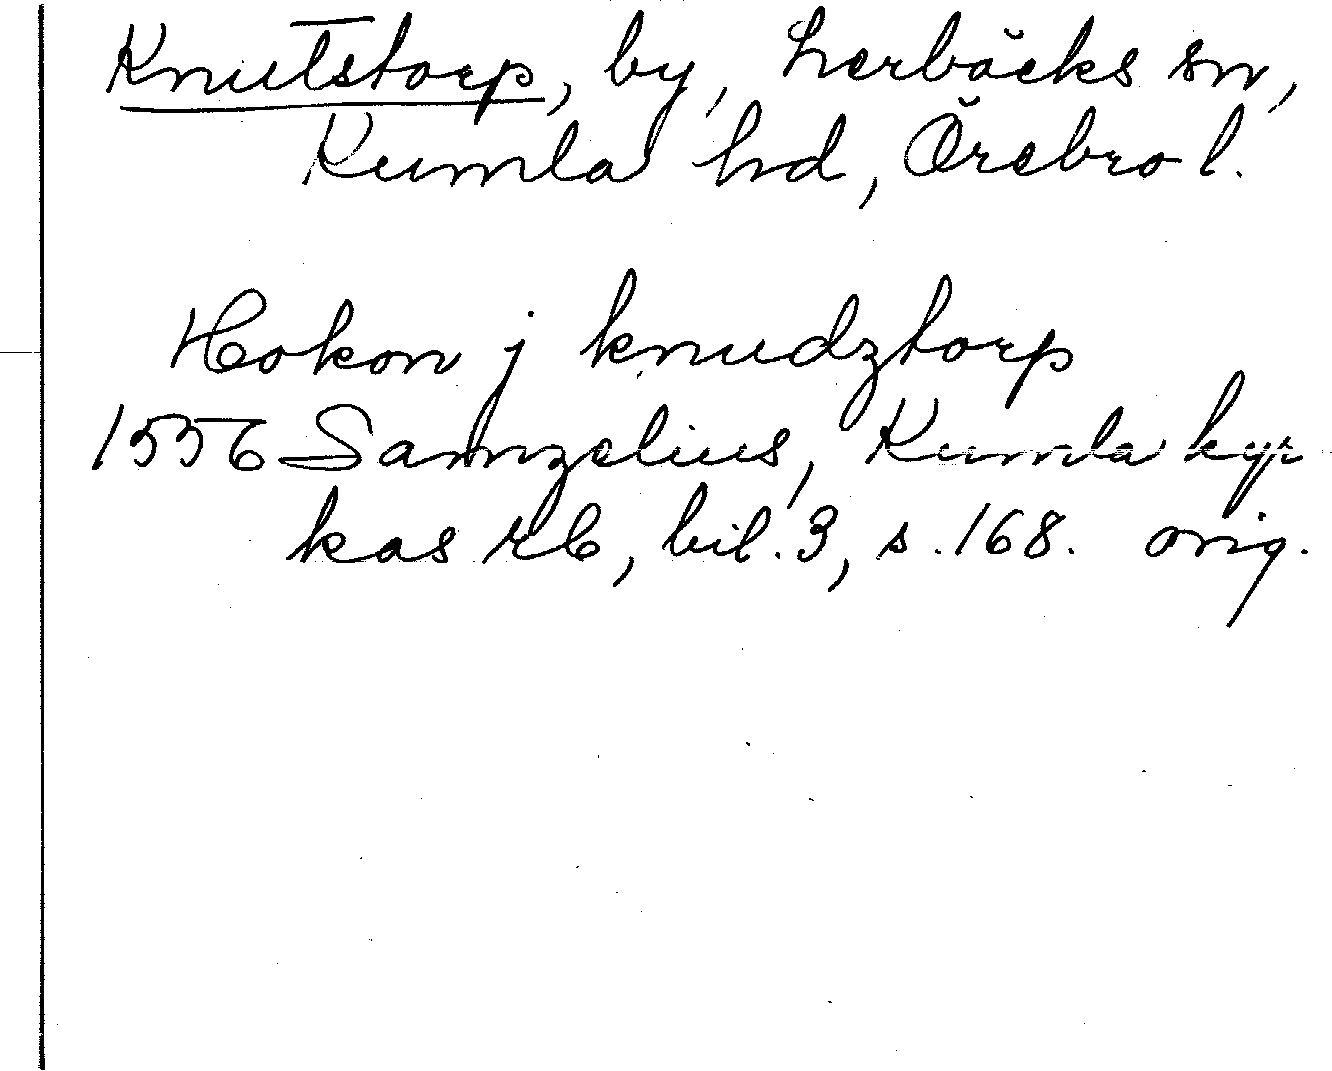 Knutstorp, by, Lerbäcks sn,
Kumla hd, Örebro l.
Hokon j knudztorp
1556 Samzelius, Kumla kyr
kas rb, bil. 3, s. 168. orig.